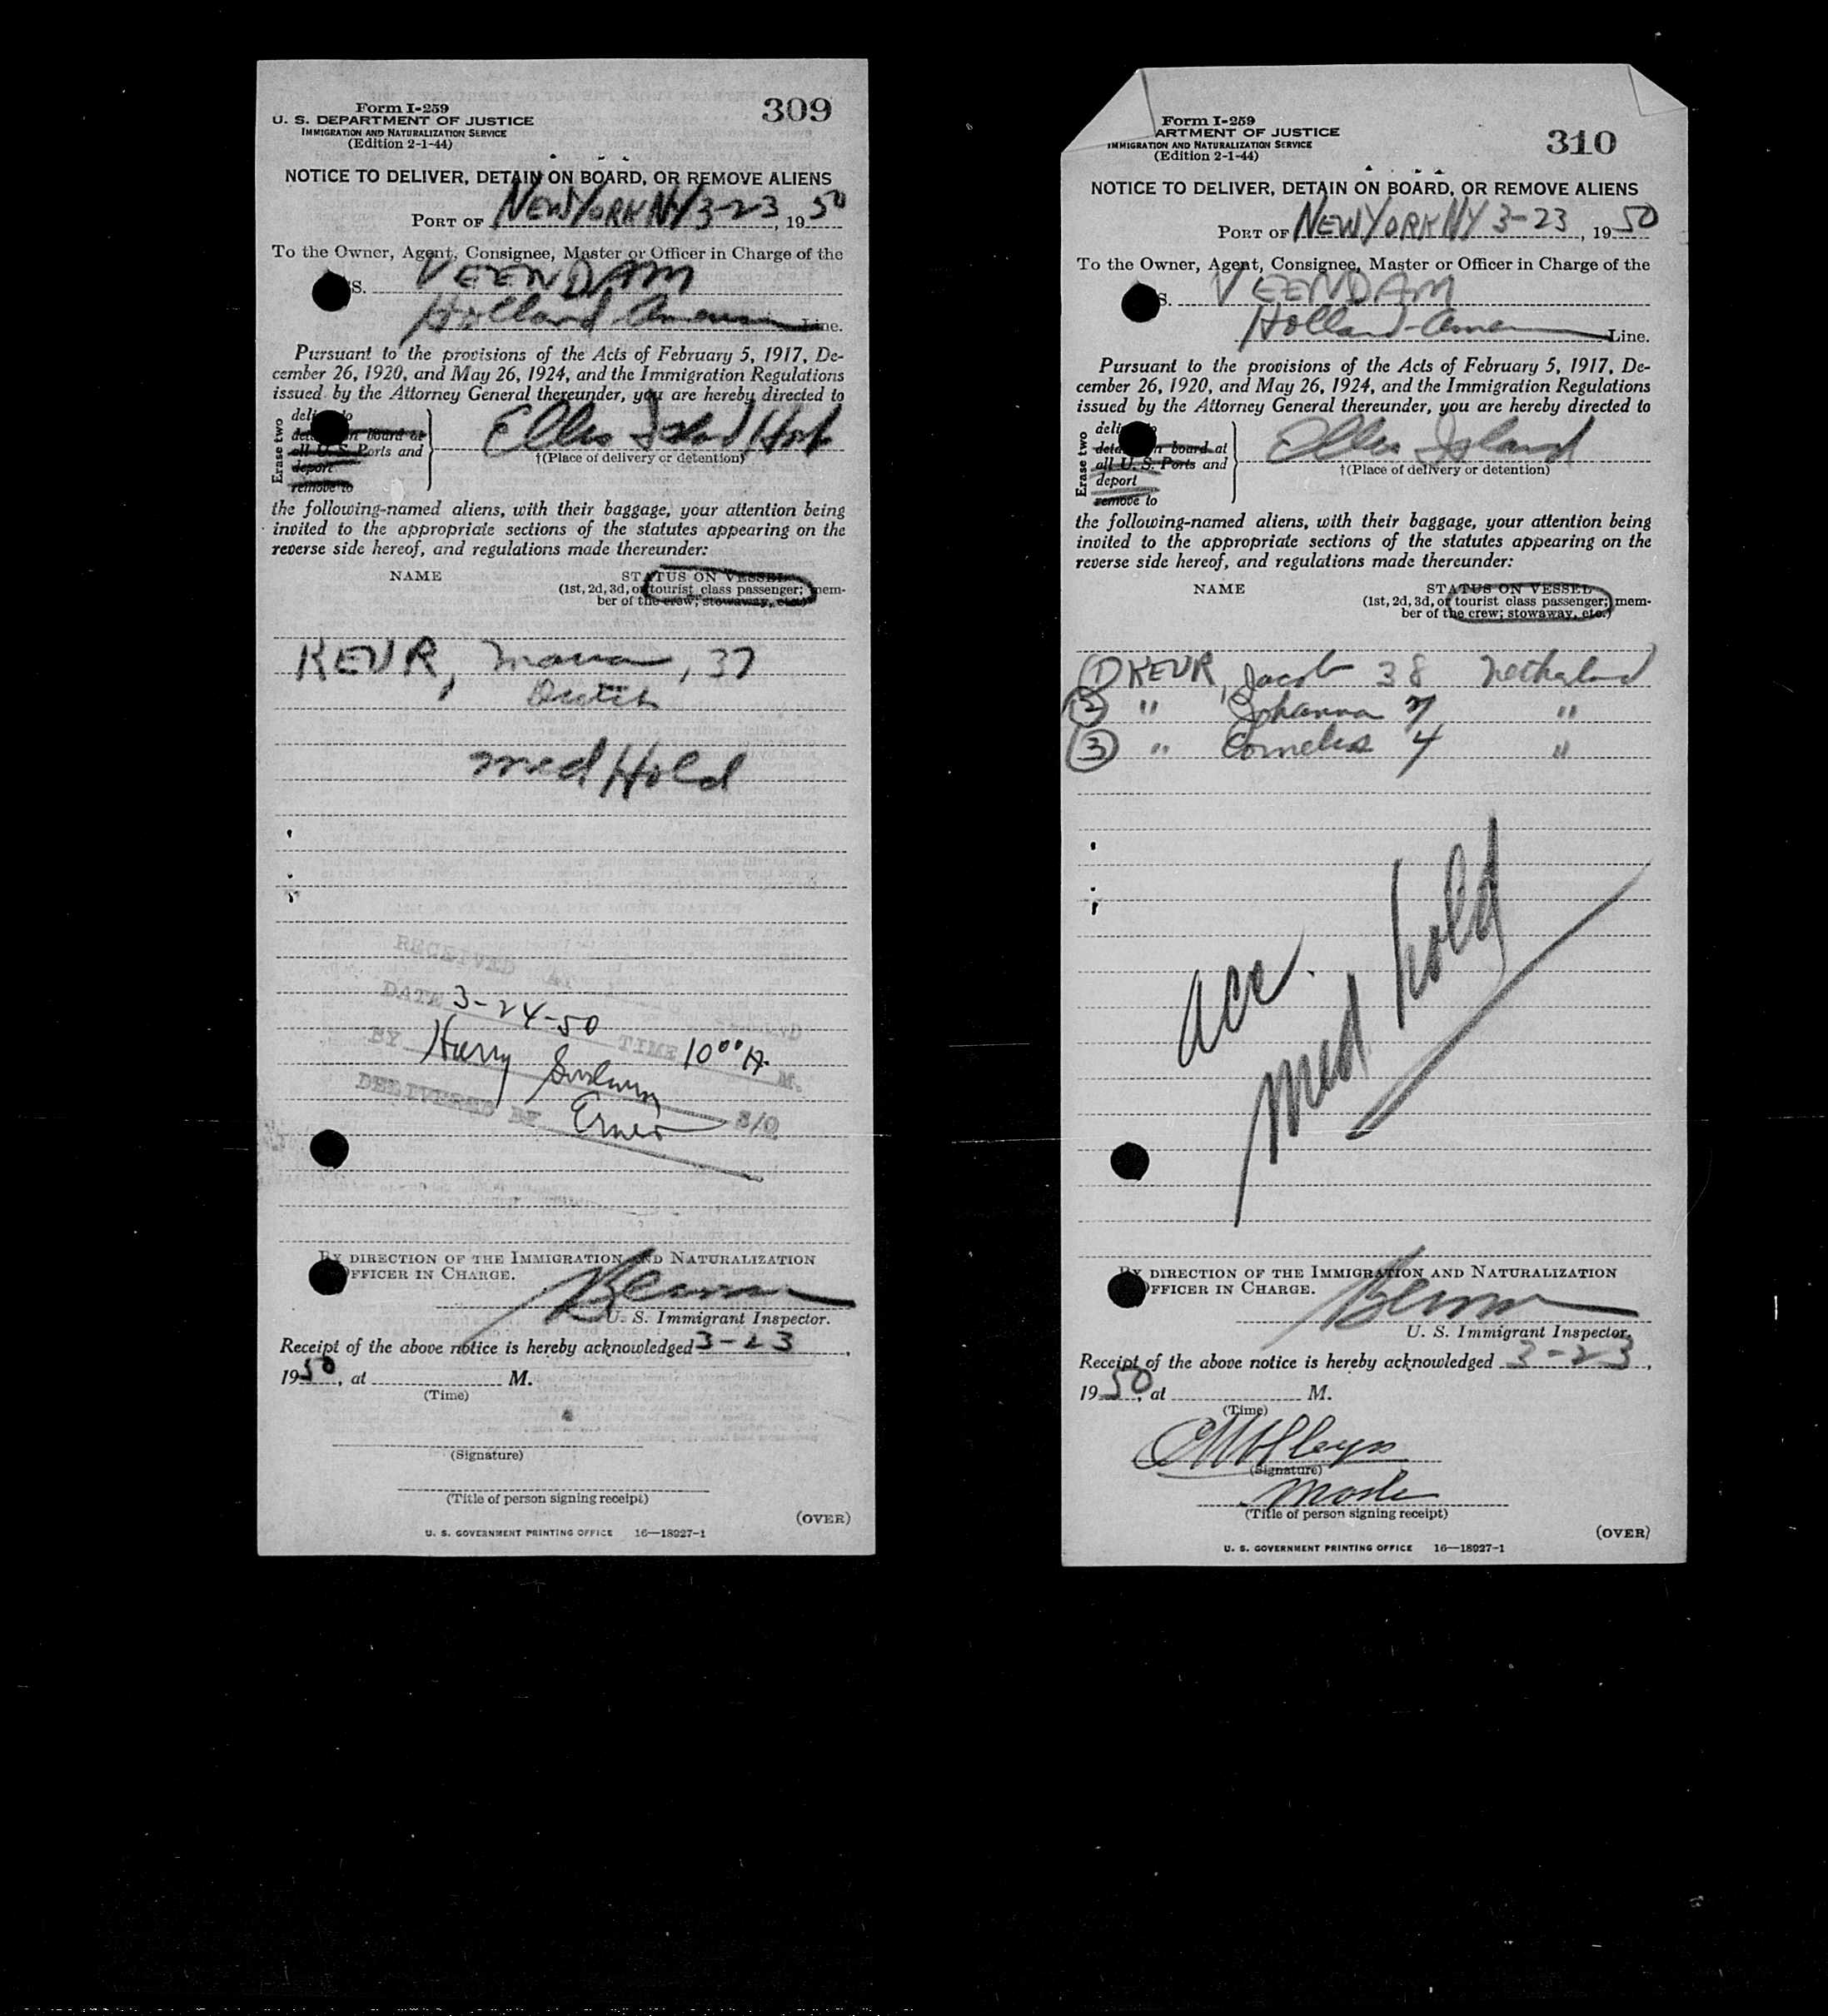 Form I-259
U. S. DEPARTMENT OF JUSTICE
IMMIGRATION AND NATURALIZATION SERVICE
(Edition 2-1-44)
309
NOTICE TO DELIVER, DETAIN ON BOARD, OR REMOVE ALIENS
PORT OF NEW YORK NY 3-23, 1950
To the Owner, Agent, Consignee, Master or Officer in Charge of the
S. VEENDAM
Holland-American Line.
Pursuant to the provisions of the Acts of February 5, 1917, De-
cember 26, 1920, and May 26, 1924, and the Immigration Regulations
issued by the Attorney General thereunder, you are hereby directed to
Erase two
deli to
deta n board at
all U. S. Ports and
deport
remove to
Ellis Island Hosp
†(Place of delivery or detention)
the following-named aliens, with their baggage, your attention being
invited to the appropriate sections of the statutes appearing on the
reverse side hereof, and regulations made thereunder:
NAME STATUS ON VESSEL
(1st, 2d, 3d, or tourist class passenger; mem-
ber of the crew; stowaway, etc.)
KEUR, Maria, 37
Dutch
Med Hold
RECEIVED AT
DATE 3-24-50 TIME 10 00 A. M.
BY Harry
DELIVERED BY S/O
BY DIRECTION OF THE IMMIGRATION AND NATURALIZATION
OFFICER IN CHARGE.
U. S. Immigrant Inspector.
Receipt of the above notice is hereby acknowledged 3-23,
1950, at M.
(Time)
(Signature)
(Title of person signing receipt)
(OVER)
U. S. GOVERNMENT PRINTING OFFICE 16—18927-1
Form I-259
ARTMENT OF JUSTICE
IMMIGRATION AND NATURALIZATION SERVICE
(Edition 2-1-44)
310
NOTICE TO DELIVER, DETAIN ON BOARD, OR REMOVE ALIENS
PORT OF NEW YORK NY 3-23, 1950
To the Owner, Agent, Consignee, Master or Officer in Charge of the
S. VEENDAM
Holland-Amer Line.
Pursuant to the provisions of the Acts of February 5, 1917, De-
cember 26, 1920, and May 26, 1924, and the Immigration Regulations
issued by the Attorney General thereunder, you are hereby directed to
Erase two
deli to
deta n board at
all U. S. Ports and
deport
remove to
Ellis Island
†(Place of delivery or detention)
the following-named aliens, with their baggage, your attention being
invited to the appropriate sections of the statutes appearing on the
reverse side hereof, and regulations made thereunder:
NAME STATUS ON VESSEL
(1st, 2d, 3d, or tourist class passenger; mem-
ber of the crew; stowaway, etc.)
① KEUR, Jacob 38 Netherland
② " Johanna 7 "
③ " Cornelis 4 "
acc.
Med. hold
BY DIRECTION OF THE IMMIGRATION AND NATURALIZATION
OFFICER IN CHARGE.
U. S. Immigrant Inspector.
Receipt of the above notice is hereby acknowledged 3-23,
1950, at M.
(Time)
(Signature)
(Title of person signing receipt)
(OVER)
U. S. GOVERNMENT PRINTING OFFICE 16—18927-1